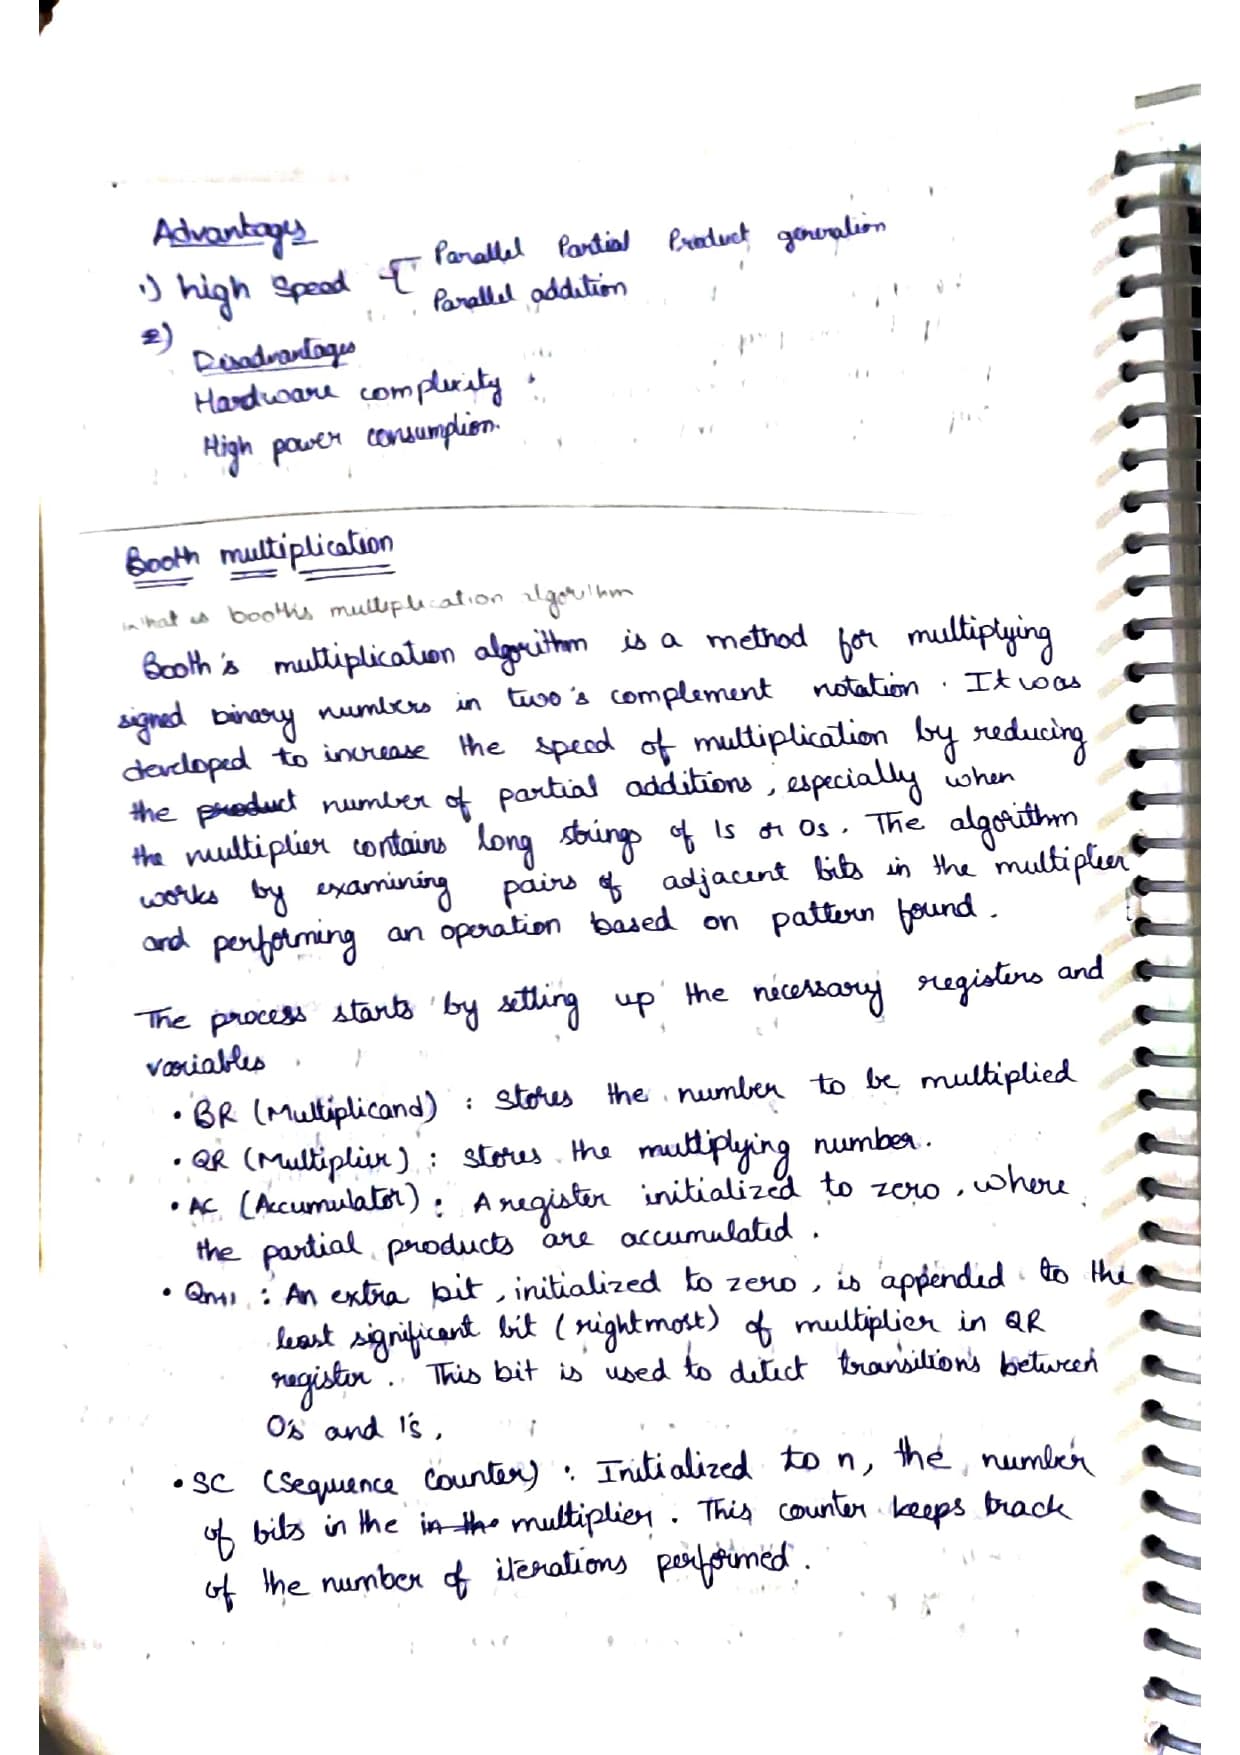 Advantages
1) high Speed { Parallel Partial Product generation
Parallel addition
2)
Disadvantages
Hardware complexity
High power consumption.
Booth multiplication
what is booth's multiplication algorithm
Booth's multiplication algorithm is a method for multiplying
signed binary numbers in two's complement notation. It was
developed to increase the speed of multiplication by reducing
the product number of partial additions, especially when
the multiplier contains long strings of 1s or 0s. The algorithm
works by examining pairs of adjacent bits in the multiplier
and performing an operation based on pattern found.
The process starts by setting up the necessary registers and
variables
• BR (Multiplicand) : Stores the number to be multiplied
• QR (Multiplier) : stores the multiplying number.
• AC (Accumulator) : A register initialized to zero, where
the partial products are accumulated.
• Qn+1 : An extra bit, initialized to zero, is appended to the
least significant bit (rightmost) of multiplier in QR
register. This bit is used to detect transitions between
0's and 1's.
• SC (Sequence Counter) : Initialized to n, the number
of bits in the in the multiplier. This counter keeps track
of the number of iterations performed.